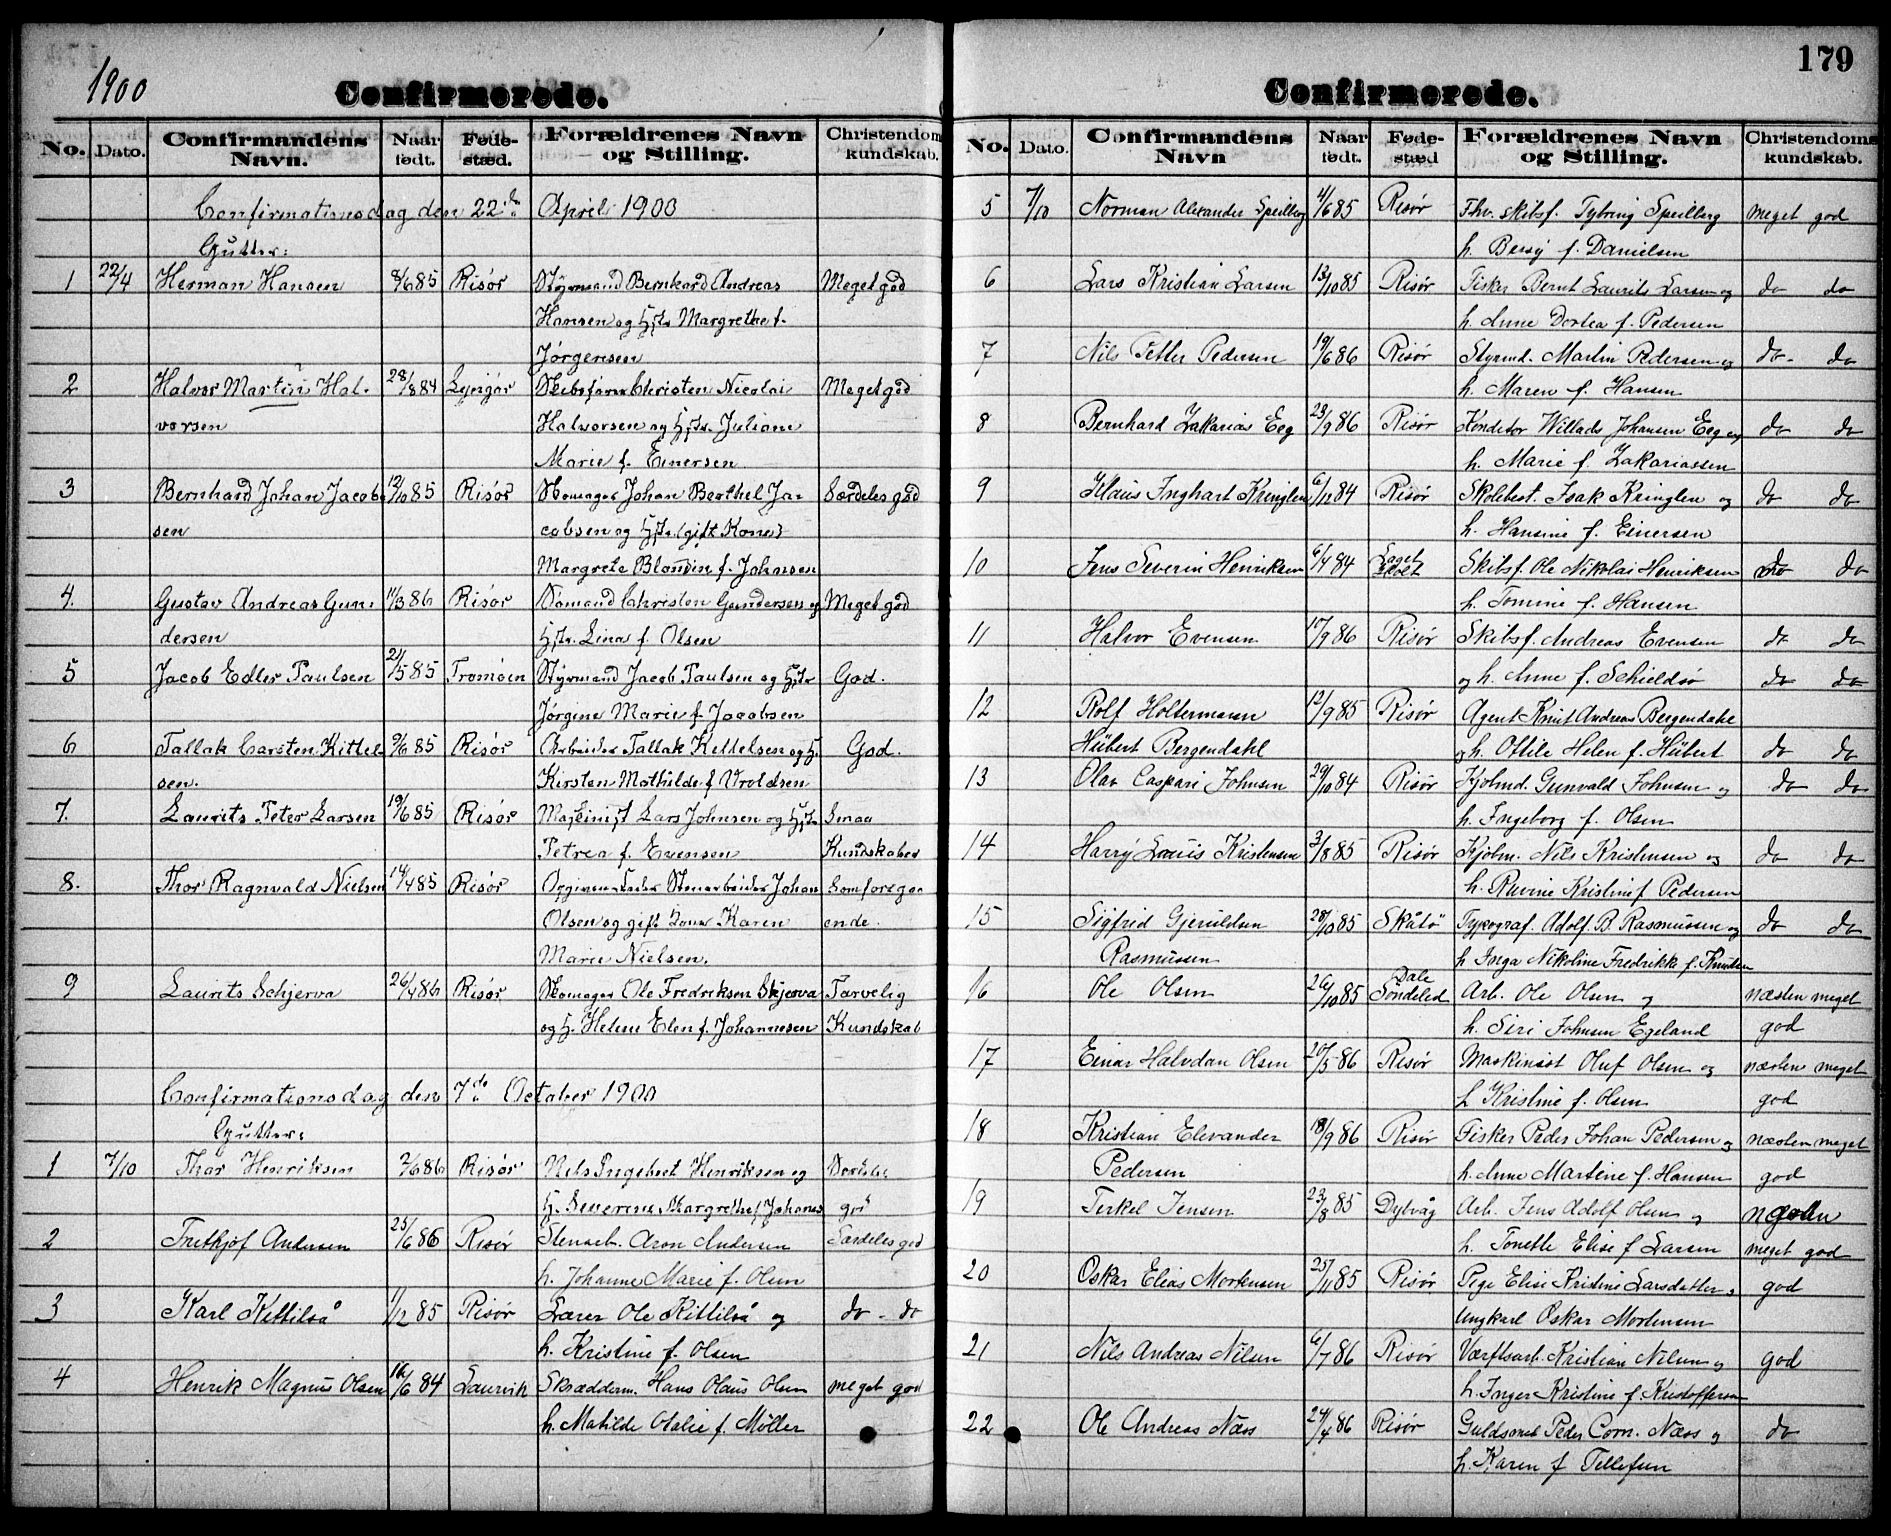 1900
Confirmerede.
No. Dato. Confirmandens Navn. Naar født. Fødestæd. Forældrenes Navn og Stilling. Christendomskundskab.
Confirmationsdag den 22de April 1900
Gutter:
1 22/4 Herman Hansen 8/6 85 Risør Styrmand Bernhard Andreas Meget god
Hansen og Hstr Margrethe f.
Jørgensen
2 Halvor Martin Hal- 28/8 84 Lyngør Skibsfører Christen Nicolai Meget god
vorsen Halvorsen og Hstr. Juliane
Marie f. Einersen
3 Bernhard Johan Jacob- 12/10 85 Risør Skomager Johan Berthel Ja- Særdeles god
sen cobsen og Hstr. (gift Kone)
Margrete Blondin f. Johansen
4. Gustav Andreas Gun- 11/3 86 Risør Sømand Christen Gundersen og Meget god
dersen Hstr. Lina f. Olsen
5 Jacob Edler Paulsen 21/5 85 Tromøen Styrmand Jacob Paulsen og Hstr God.
Jørgine Marie f. Jacobsen
6 Tallak Carsten Kittel- 9/6 85 Risør Arbeider Tallak Kittelsen og H. God.
sen. Kirsten Mathilde f Vroldsen
7. Laurits Peter Larsen 19/6 85 Risør Maskinist Lars Johnsen og Hstr Smaa
Petrea f. Evensen Kundskaber
8. Thor Ragnvald Nielsen 14/4 85 Risør Opgiven Fader Stenarbeider Johan Som foregaa
Olsen og gift Kone Karen ende.
Marie Nielsen.
9 Laurits Schjerva 26/4 86 Risør Skomager Ole Fredriksen Skjerva Tarvelig
og H. Helene Elen f. Johannesen Kundskab
Confirmationsdag den 7de October 1900
Gutter:
1 7/10 Thor Henriksen 2/6 86 Risør Nils Ingebret Henriksen og Særdeles
H. Severine Margrethe f Johannes god
2 Fritkjof Andersen 25/6 86 Risør Stenarb. Aron Andersen Særdeles god
h. Johanne Marie f. Olsen
3 Karl Kittilså 1/12 85 Risør Lærer Ole Kittilså og do - do
h. Kristine f. Olsen
4 Henrik Magnus Olsen 16/6 84 Laurvik Skrædderm. Hans Olaus Olsen meget god
h. Matilde Otalie f. Møller
179
Confirmerede.
No. Dato. Confirmandens Navn Naar født. Fødestæd Forældrenes Navn og Stilling. Christendomskundskab.
5 7/10 Norman Alexander Speilberg 4/6 85 Risør Fhv. skibsf. Tybring Speilberg meget god
h. Bessy f. Danielsen
6 Lars Kristian Larsen 13/10 85 Risør Fisker Bernt Laurits Larsen og do do
h. Anne Dortea f. Pedersen
7 Nils Petter Pedersen 19/6 86 Risør Styrmd. Martin Pedersen og do- do
h. Maren f. Hansen
8 Bernhard Zakarias Eeg 23/9 86 Risør Konditor Willads Johansen Eeg og do do
h. Marie f. Zakariassen
9 Klaus Inghart Kringlen 6/12 84 Risør Skolebest. Isak Kringlen og do do
h. Hansine f. Einersen
10 Jens Severin Henriksen 6/4 84 Skibsf. Ole Nikolai Henriksen do do
h. Tomine f. Hansen
11 Halvor Evensen 17/9 86 Risør Skibsf. Andreas Evensen do do
og h. Anne f. Schieldsø do do
12 Rolf Holtermann 12/9 85 Risør Agent Knut Andreas Bergendahl
Hübert Bergendahl og h. Ottile Helen f. Hübert do do
13 Olav Caspari Johnsen 29/10 84 Risør Kjølmd. Gunvald Johnsen og do do
h. Ingeborg f. Olsen
14 Harry Louis Kristensen 3/8 85 Risør Kjølm. Nils Kristensen og do do
h. Ruvine Kristine f Pedersen
15 Sigfrid Gjeruldsen 28/10 85 Skåtø Typograf. Adolf B. Rasmussen og do do
Rasmussen h Inga Nikoline Fredrikke f. Knudsen
16 Ole Olsen 26/10 85 Dale Søndeled Arb. Ole Olsen og næsten meget
h. Siri Johnsen Egeland god
17 Einar Halvdan Olsen 20/5 86 Risør Maskinist Oluf Olsen og næsten meget
h Kristine f. Olsen god
18 Kristian Elevander 18/9 86 Risør Fisker Peder Johan Pedersen og næsten meget
Pedersen h. Anne Martine f. Hansen god
19 Terkel Jensen 23/8 85 Dybvåg Arb. Jens Adolf Olsen og
h. Tonette Elise f Larsen meget god
20 Oskar Elias Mortensen 25/11 85 Risør Pige Elise Kristine Larsdatter og god
Ungkarl Oskar Mortensen
21 Nils Andreas Nilsen 6/7 86 Risør Værftsarb. Kristian Nilsen og god
h. Inger Kristine f Kristoffersen
22 Ole Andreas Næss 24/4 86 Risør Guldsmed Peder Corn. Næss og do
h. Karen f Tellefsen